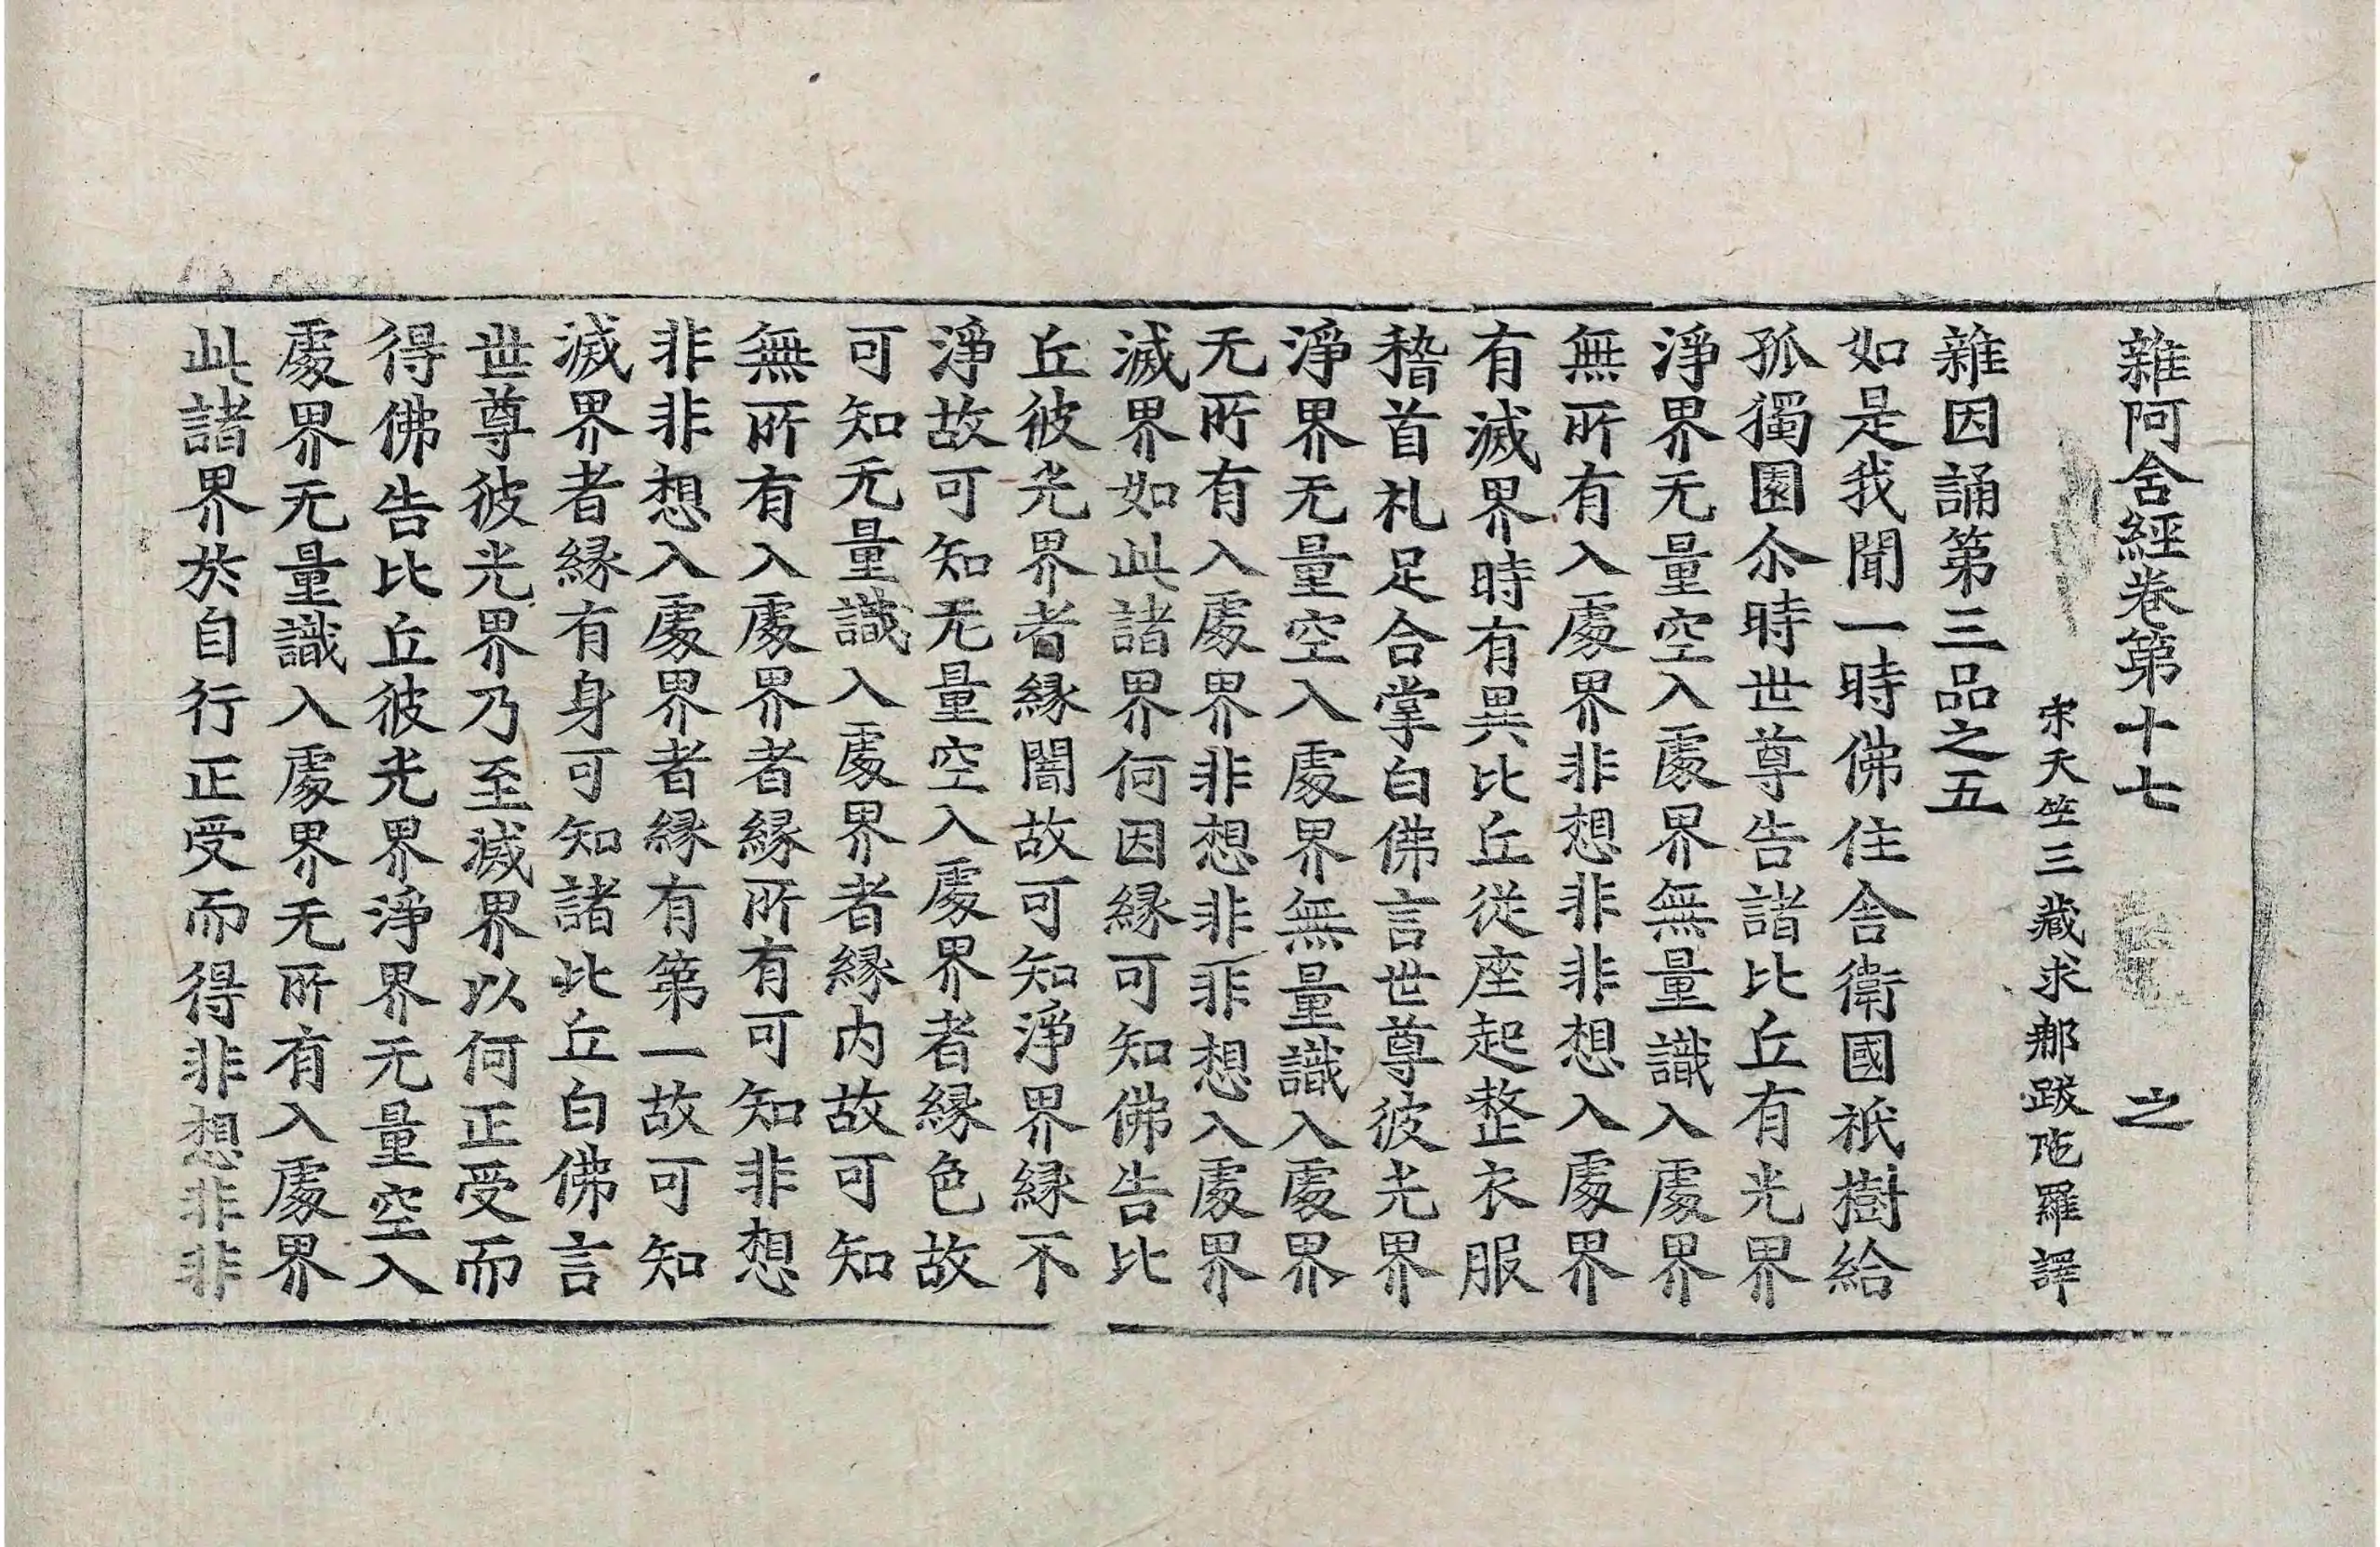 雜阿含經卷第十七 之
宋天竺三藏求那跋陁羅譯
雜因誦第三品之五
如是我聞一時佛住舍衛國祇樹給
孤獨園尒時世尊告諸比丘有光界
淨界无量空入處界無量識入處界
無所有入處界非想非非想入處界
有滅界時有異比丘從座起整衣服
稽首礼足合掌白佛言世尊彼光界
淨界无量空入處界無量識入處界
无所有入處界非想非非想入處界
滅界如此諸界何因緣可知佛告比
丘彼光界者緣闇故可知淨界緣不
淨故可知无量空入處界者緣色故
可知无量識入處界者緣内故可知
無所有入處界者緣所有可知非想
非非想入處界者緣有第一故可知
滅界者緣有身可知諸比丘白佛言
世尊彼光界乃至滅界以何正受而
得佛告比丘彼光界淨界无量空入
處界无量識入處界无所有入處界
此諸界於自行正受而得非想非非